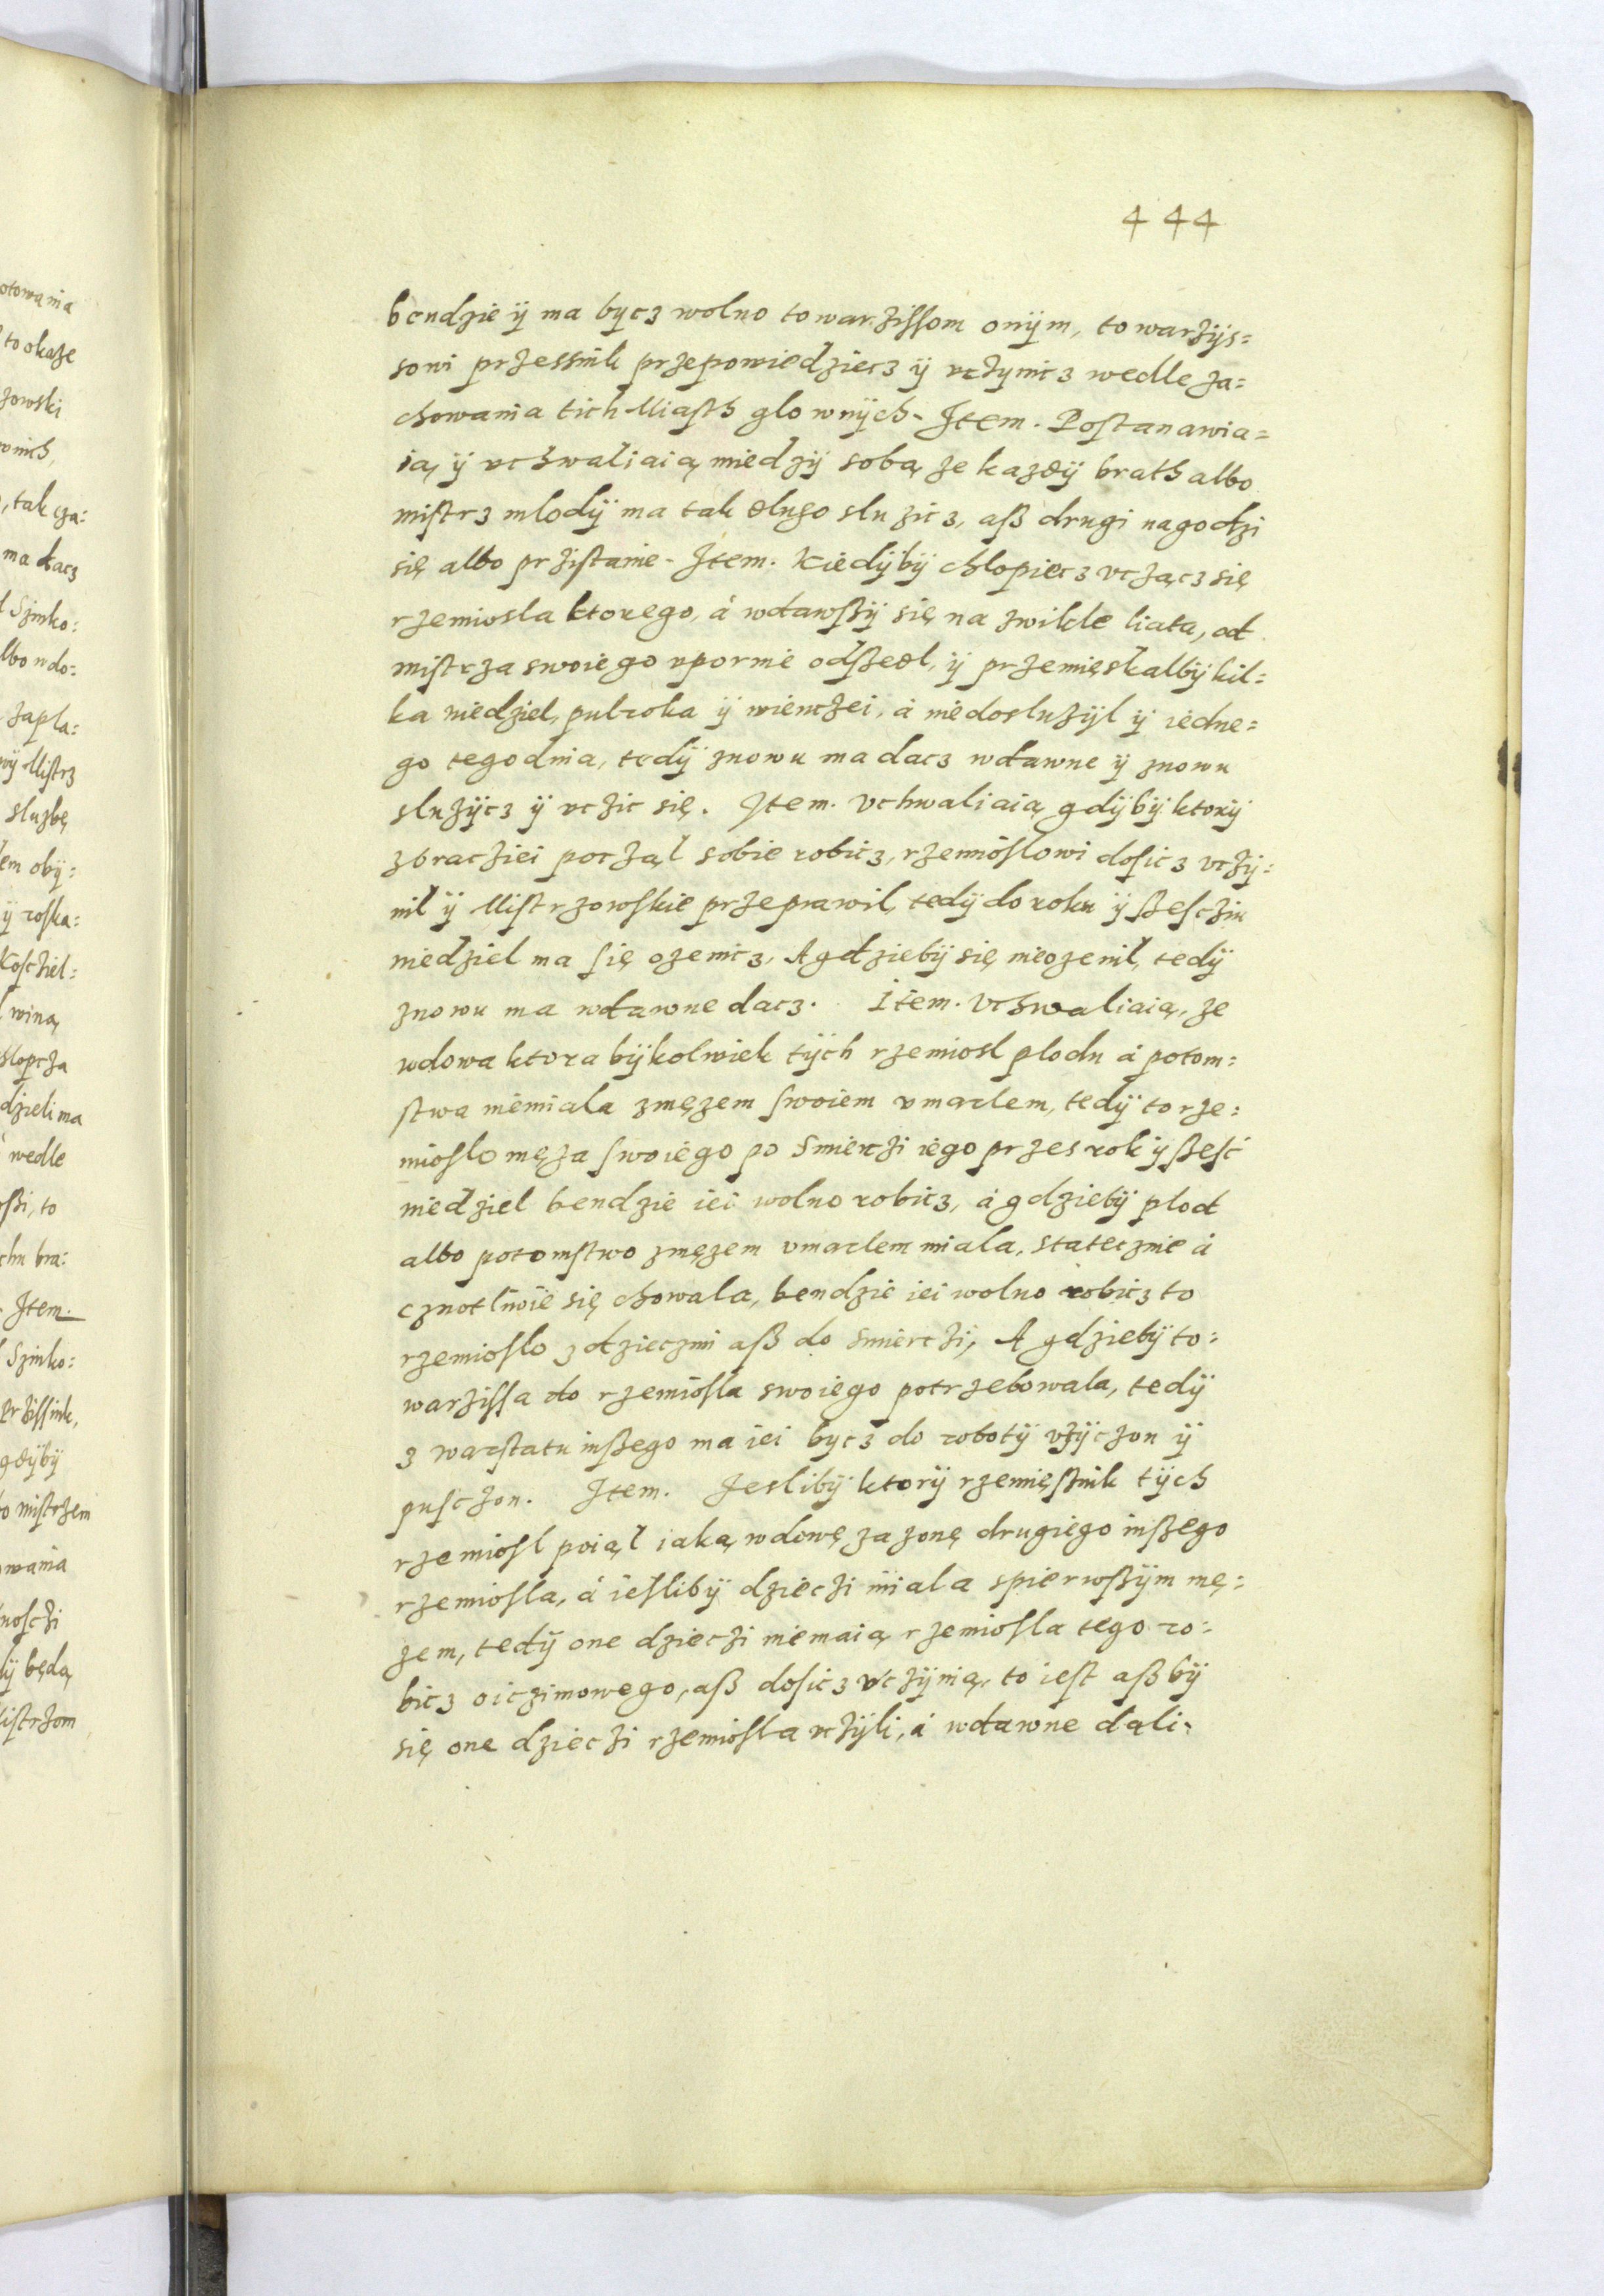 444
bendzie ÿ ma bycz wolno towarzissom onÿm, towarzÿs=
sowi przessink przepowiedziecz ÿ vczynicz wedle za=
chowania tich Miasth glownÿch. Item. Postanawia=
ią, ÿ vchwaliaią miedzÿ sobą ze kazdÿ brath albo
mistrz mlodÿ ma tak dlugo sluzicz, aß drugi nagodzi
się albo przistanie. Item. Kiedÿbÿ chlopiecz vcząncz się
rzemiosla ktorego, á wdawßÿ się na zwikle liata, od
mistrza swoiego vpornie odßedl, ÿ przemięskalbÿ kil=
ka niedziel, pulroka ÿ wienczei, á niedosluzÿl ÿ iedne=
go tegodnia, tedÿ znowu ma dacz wdawne ÿ znowu
sluzÿcz ÿ vczic się. Item. Vchwaliaią gdÿbÿ ktorÿ
zbracziei począl sobie robicz, rzemioslowi dosicz vczÿ=
nil ÿ Mistrzowskie przeprawil, tedÿ do roku ÿ ßescziu
niedziel ma się ozenicz, A gdziebÿ się nieozenil, tedÿ
znowu ma wdawne dacz. Item. Vchwaliaią, ze
wdowa ktorabÿkolwiek tÿch rzemiosl plodu á potom=
stwa niemiala zmęzem swoiem vmarlem, tedÿ to rze=
mioslo męza swoiego po smierzi iego przes rok ÿ ßesć
niedziel bendzie iei wolno robicz, á gdziebÿ plod
albo potomstwo zmęzem vmarlem miala, statecznie á
cznotliwie się chowala, bendzie iei wolno robicz to
rzemioslo z dzieczmi aß do smierczi, A gdziebÿ to=
warzissa do rzemiosla swoiego potrzebowala, tedÿ
z warstatu inßego ma iei bycz do robotÿ vzÿczon ÿ
pusczon. Item. Jeslibÿ ktorÿ rzemięßnik tÿch
rzemiosl poiąl iaką wdowę za zonę drugiego inßego
rzemiosla, á ieslibÿ dzieczi miala spierwßÿm mę=
zem, tedÿ one dzieczi niemaią rzemiosla tego ro=
bicz oiczimowego, aß dosicz vczÿnią, to iest aß bÿ
się one dzieczi rzemiosla vczÿli, á wdawne dali=